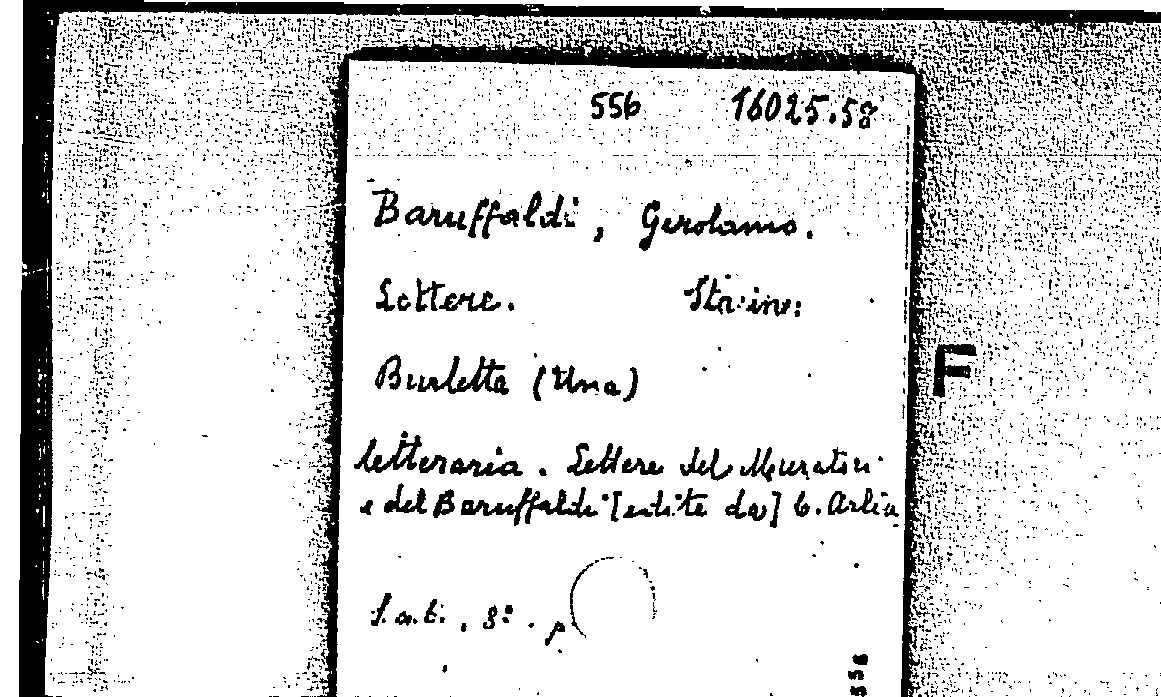 556 16025.58
Baruffaldi, Gerolamo.
Lettere. Sta in:
Burletta (Una)
letteraria. Lettere del Muratori
e del Baruffaldi [edite da] C. Arlia
S.a.t., 8º. p.
F
556